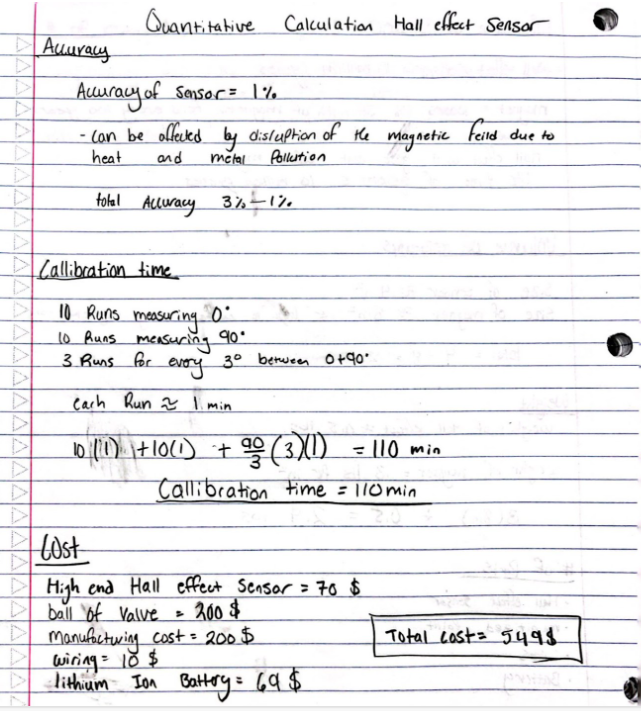 Quantitative Calculation Hall effect Sensor
Accuracy
Accuracy of Sensor = 1%
- Can be affected by disruption of the magnetic feild due to
heat and metal Pollution
total Accuracy 3% - 1%
Callibration time
10 Runs measuring 0°
10 Runs measuring 90°
3 Runs for every 3° between 0+90°
Each Run ≈ 1 min
10(1) + 10(1) + 90/3 (3)(1) = 110 min
Callibration time = 110 min
Cost
High end Hall effect Sensor = 70 $
ball of Valve = 200 $
Manufacturing cost = 200 $
Total cost = 549 $
wiring = 10 $
lithium Ion Battery = 69 $